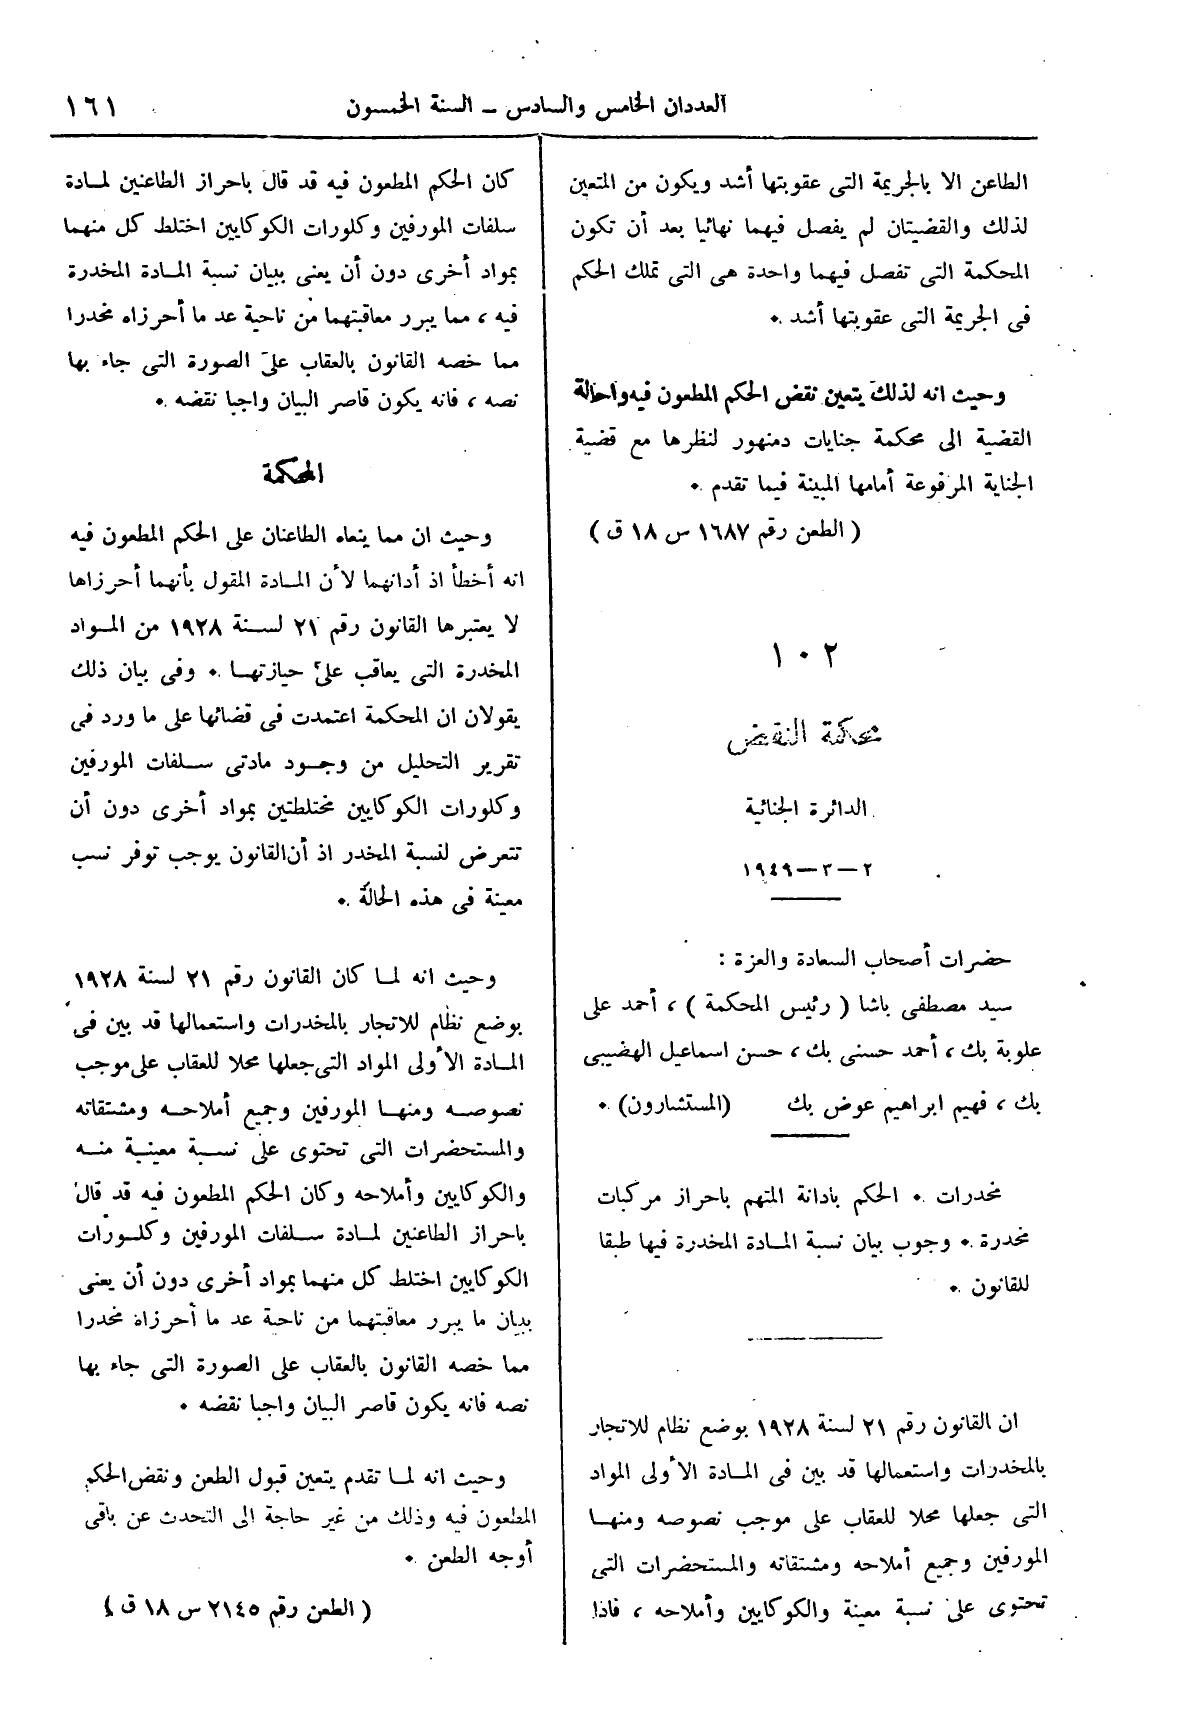 العددان الخامس والسادس ــ السنة الخمسون
١٦١
الطاعن الا بالجريمة التى عقوبتها أشد ويكون من المتعين
لذلك والقضيتان لم يفصل فيهما نهائيا بعد أن تكون
المحكمة التى تفصل فيهما واحدة هى التى تملك الحكم
فى الجريمة التى عقوبتها أشد ٠
وحيث انه لذلك يتعين نقض الحكم المطعون فيه واحالة
القضية الى محكمة جنايات دمنهور لنظرها مع قضية
الجناية المرفوعة أمامها المبينة فيما تقدم ٠
( الطعن رقم ١٦٨٧ س ١٨ ق )
١٠٢
محكمة النقض
الدائرة الجنائية
٢ ــ ٣ ــ ١٩٤٩
حضرات أصحاب السعادة والعزة :
سيد مصطفى باشا ( رئيس المحكمة ) ، أحمد على
علوبة بك ، أحمد حسنى بك ، حسن اسماعيل الهضيبى
بك ، فهيم ابراهيم عوض بك (المستشارون) ٠
مخدرات ٠ الحكم بادانة المتهم باحراز مركبات
مخدرة ٠ وجوب بيان نسبة المادة المخدرة فيها طبقا
للقانون ٠
ان القانون رقم ٢١ لسنة ١٩٢٨ بوضع نظام للاتجار
بالمخدرات واستعمالها قد بين فى المادة الأولى المواد
التى جعلها محلا للعقاب على موجب نصوصه ومنها
المورفين وجميع أملاحه ومشتقاته والمستحضرات التى
تحتوى على نسبة معينة والكوكايين وأملاحه ، فاذا
كان الحكم المطعون فيه قد قال باحراز الطاعنين لمادة
سلفات المورفين وكلورات الكوكايين اختلط كل منهما
بمواد أخرى دون أن يعنى ببيان نسبة المادة المخدرة
فيه ، مما يبرر معاقبتهما من ناحية عد ما أحرزاه مخدرا
مما خصه القانون بالعقاب على الصورة التى جاء بها
نصه ، فانه يكون قاصر البيان واجبا نقضه ٠
المحكمة
وحيث ان مما ينعاه الطاعنان على الحكم المطعون فيه
انه أخطأ اذ أدانهما لأن المادة المقول بأنهما أحرزاها
لا يعتبرها القانون رقم ٢١ لسنة ١٩٢٨ من المواد
المخدرة التى يعاقب على حيازتها ٠ وفى بيان ذلك
يقولان ان المحكمة اعتمدت فى قضائها على ما ورد فى
تقرير التحليل من وجود مادتى سلفات المورفين
وكلورات الكوكايين مختلطتين بمواد أخرى دون أن
تتعرض لنسبة المخدر اذ أن القانون يوجب توفر نسب
معينة فى هذه الحالة ٠
وحيث انه لما كان القانون رقم ٢١ لسنة ١٩٢٨
بوضع نظام للاتجار بالمخدرات واستعمالها قد بين فى
المادة الأولى المواد التى جعلها محلا للعقاب على موجب
نصوصه ومنها المورفين وجميع أملاحه ومشتقاته
والمستحضرات التى تحتوى على نسبة معينة منه
والكوكايين وأملاحه وكان الحكم المطعون فيه قد قال
باحراز الطاعنين لمادة سلفات المورفين وكلورات
الكوكايين اختلط كل منهما بمواد أخرى دون أن يعنى
ببيان ما يبرر معاقبتهما من ناحية عد ما أحرزاه مخدرا
مما خصه القانون بالعقاب على الصورة التى جاء بها
نصه فانه يكون قاصر البيان واجبا نقضه ٠
وحيث انه لما تقدم يتعين قبول الطعن ونقض الحكم
المطعون فيه وذلك من غير حاجة الى التحدث عن باقى
أوجه الطعن ٠
( الطعن رقم ٢١٤٥ س ١٨ ق )